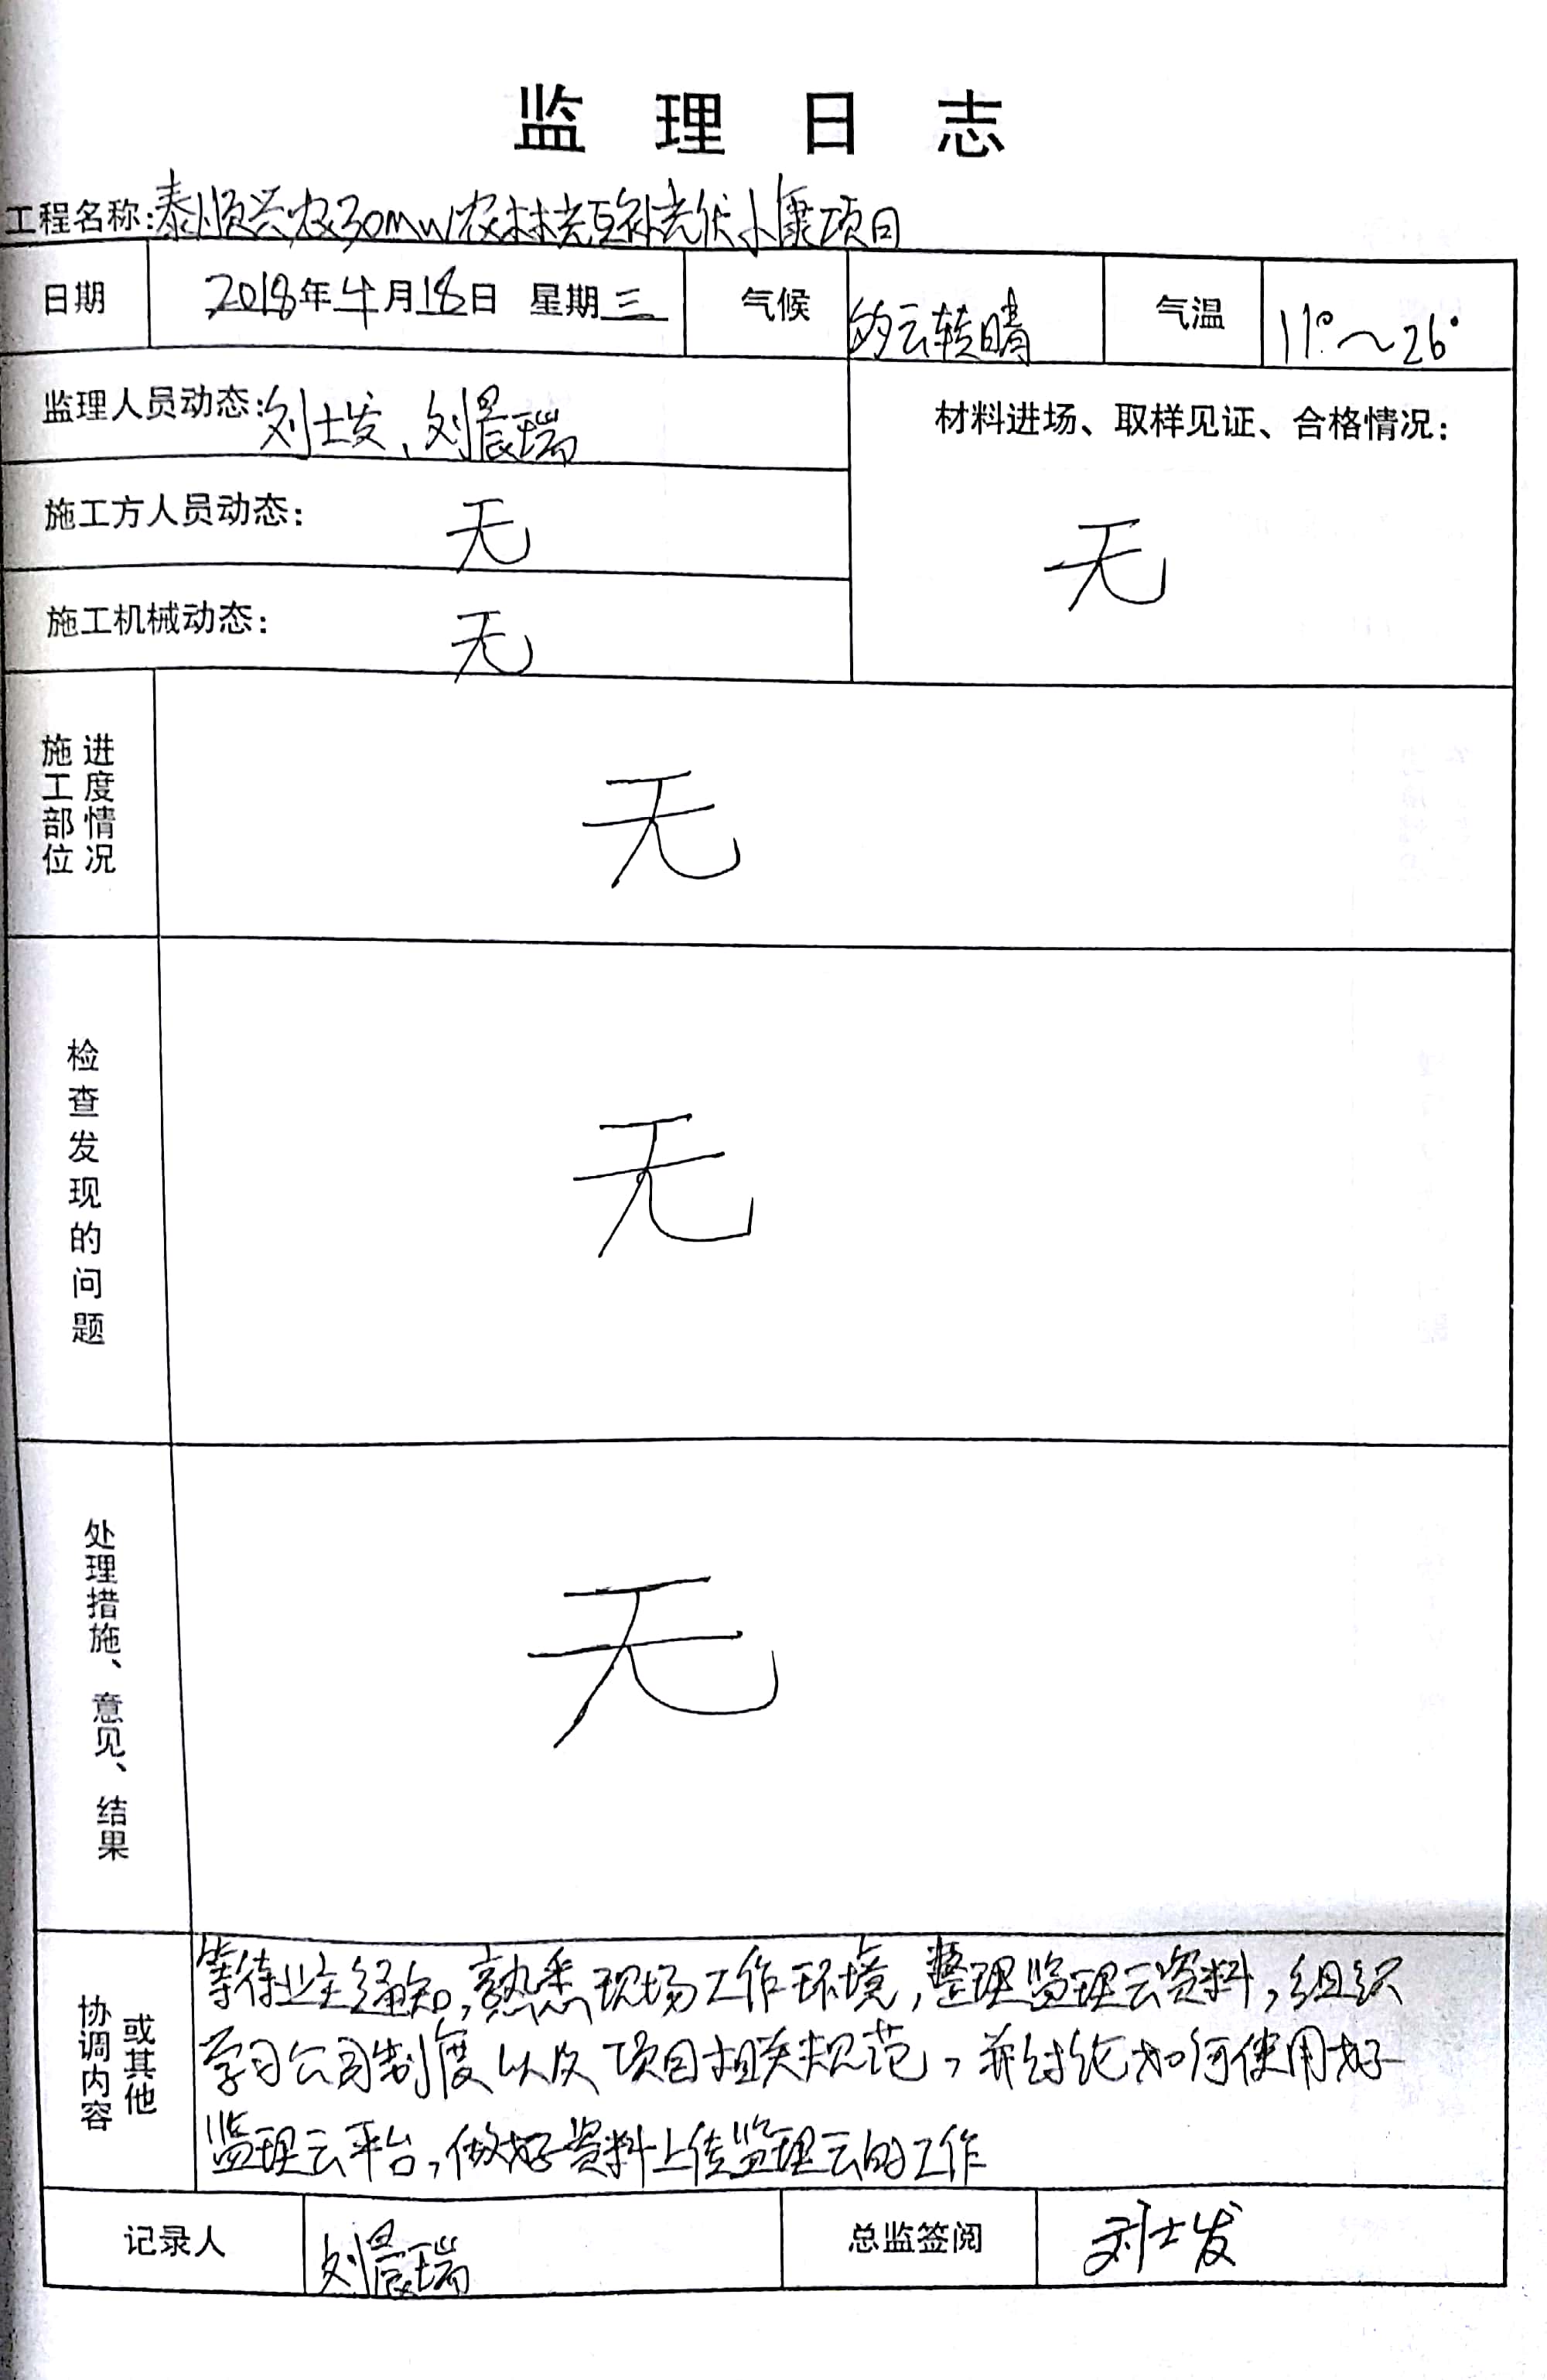 监理日志
工程名称:泰顺兴农30MW农林光互补光伏小康项目
日期 2018年4月18日 星期三 气候 多云转晴 气温 11°～26°
监理人员动态:刘士发、刘晨瑞
材料进场、取样见证、合格情况:
无
施工方人员动态: 无
施工机械动态: 无
施工部位
进度情况
无
检查发现的问题
无
处理措施、意见、结果
无
协调内容
或其他
等待业主通知,熟悉现场工作环境,整理监理云资料,组织
学习公司制度以及项目相关规范,并讨论如何使用好
监理云平台,做好资料上传监理云的工作
记录人 刘晨瑞 总监签阅 刘士发